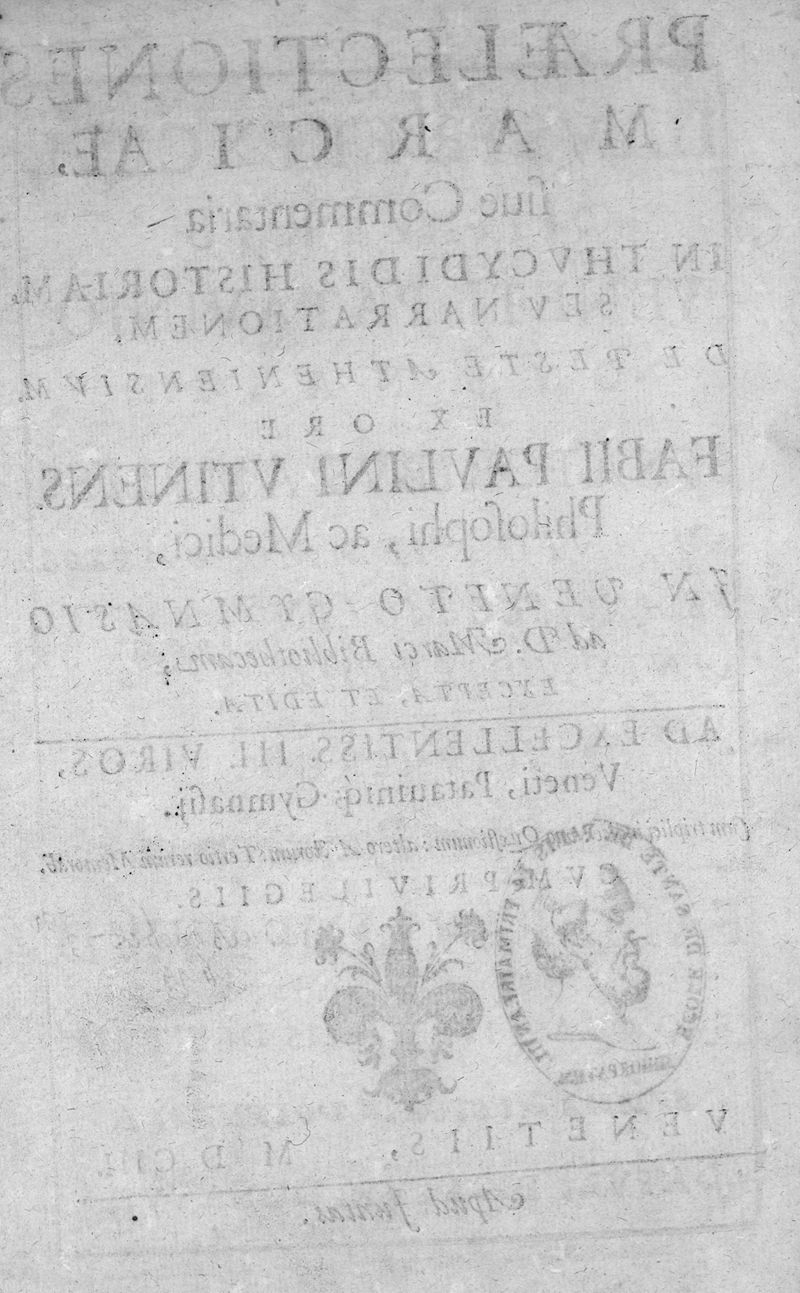 PRÆLECTIONES
MARCICAE,
siue Commentaria
IN THVCYDIDIS HISTORIAM,
SEV NARRATIONEM,
DE PESTE ATHENIENSIVM.
EX ORE
FABII PAVLINI VTINENS
Philosophi, ac Medici,
IN VENETO GYMNASIO
ad D. Marci Bibliothecam,
EXCEPTA, ET EDITA.
AD EXCELLENTISS. III. VIROS,
Veneti, Patauiniq́; Gymnasij.
Cum triplici Quæstionum: altero Tertio rerum Memorab.
CVM PRIVILEGIIS.
VENETIIS, M D CIII.
Apud Juntas.